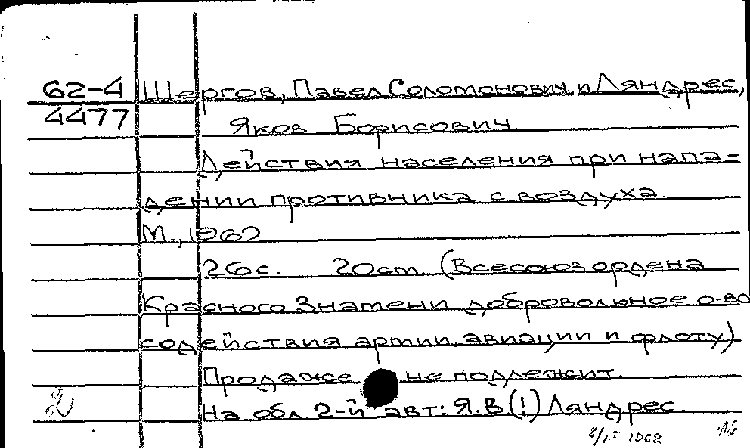 62-4
4477
Шергов, Павел Соломонович и Ляндрес,
Яков Борисович
Действия населения при напа=
дении противника с воздуха
М., 1962
26с. 20cm (Всесоюз ордена
Красного Знамени добровольное о-во
содействия армии, авиации и флоту)
Продаже не подлежит.
На обл 2-й авт: Я.В(!) Ляндрес